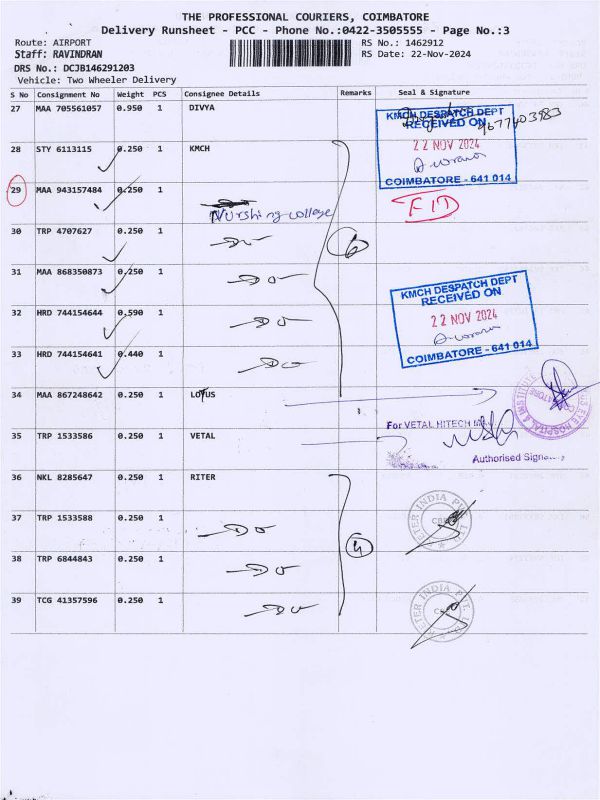 THE PROFESSIONAL COURIERS, COIMBATORE
Delivery Runsheet - PCC - Phone No.:0422-3505555 - Page No.:3
Route: AIRPORT RS No.: 1462912
Staff: RAVINDRAN RS Date: 22-Nov-2024
DRS No.: DCJB146291203
Vehicle: Two Wheeler Delivery
S No Consignment No Weight PCS Consignee Details Remarks Seal & Signature
27 MAA 705561057 0.950 1 DIVYA
9677403983
KMCH DESPATCH DEPT
RECEIVED ON
22 NOV 2024
COIMBATORE - 641 014
28 STY 6113115 0.250 1 KMCH
29 MAA 943157484 0.250 1
Nurshing college
FID
30 TRP 4707627 0.250 1 Do
6
31 MAA 868350873 0.250 1 Do
KMCH DESPATCH DEPT
RECEIVED ON
22 NOV 2024
COIMBATORE - 641 014
32 HRD 744154644 0.590 1 Do
33 HRD 744154641 0.440 1 Do
34 MAA 867248642 0.250 1 LOTUS
EYE HOSPITAL & INSTITUTE
For VETAL HITECH
35 TRP 1533586 0.250 1 VETAL
Authorised
36 NKL 8285647 0.250 1 RITER
37 TRP 1533588 0.250 1 Do
RIETER INDIA PVT. LTD.
4
38 TRP 6844843 0.250 1 Do
39 TCG 41357596 0.250 1 Do
RIETER INDIA PVT. LTD.